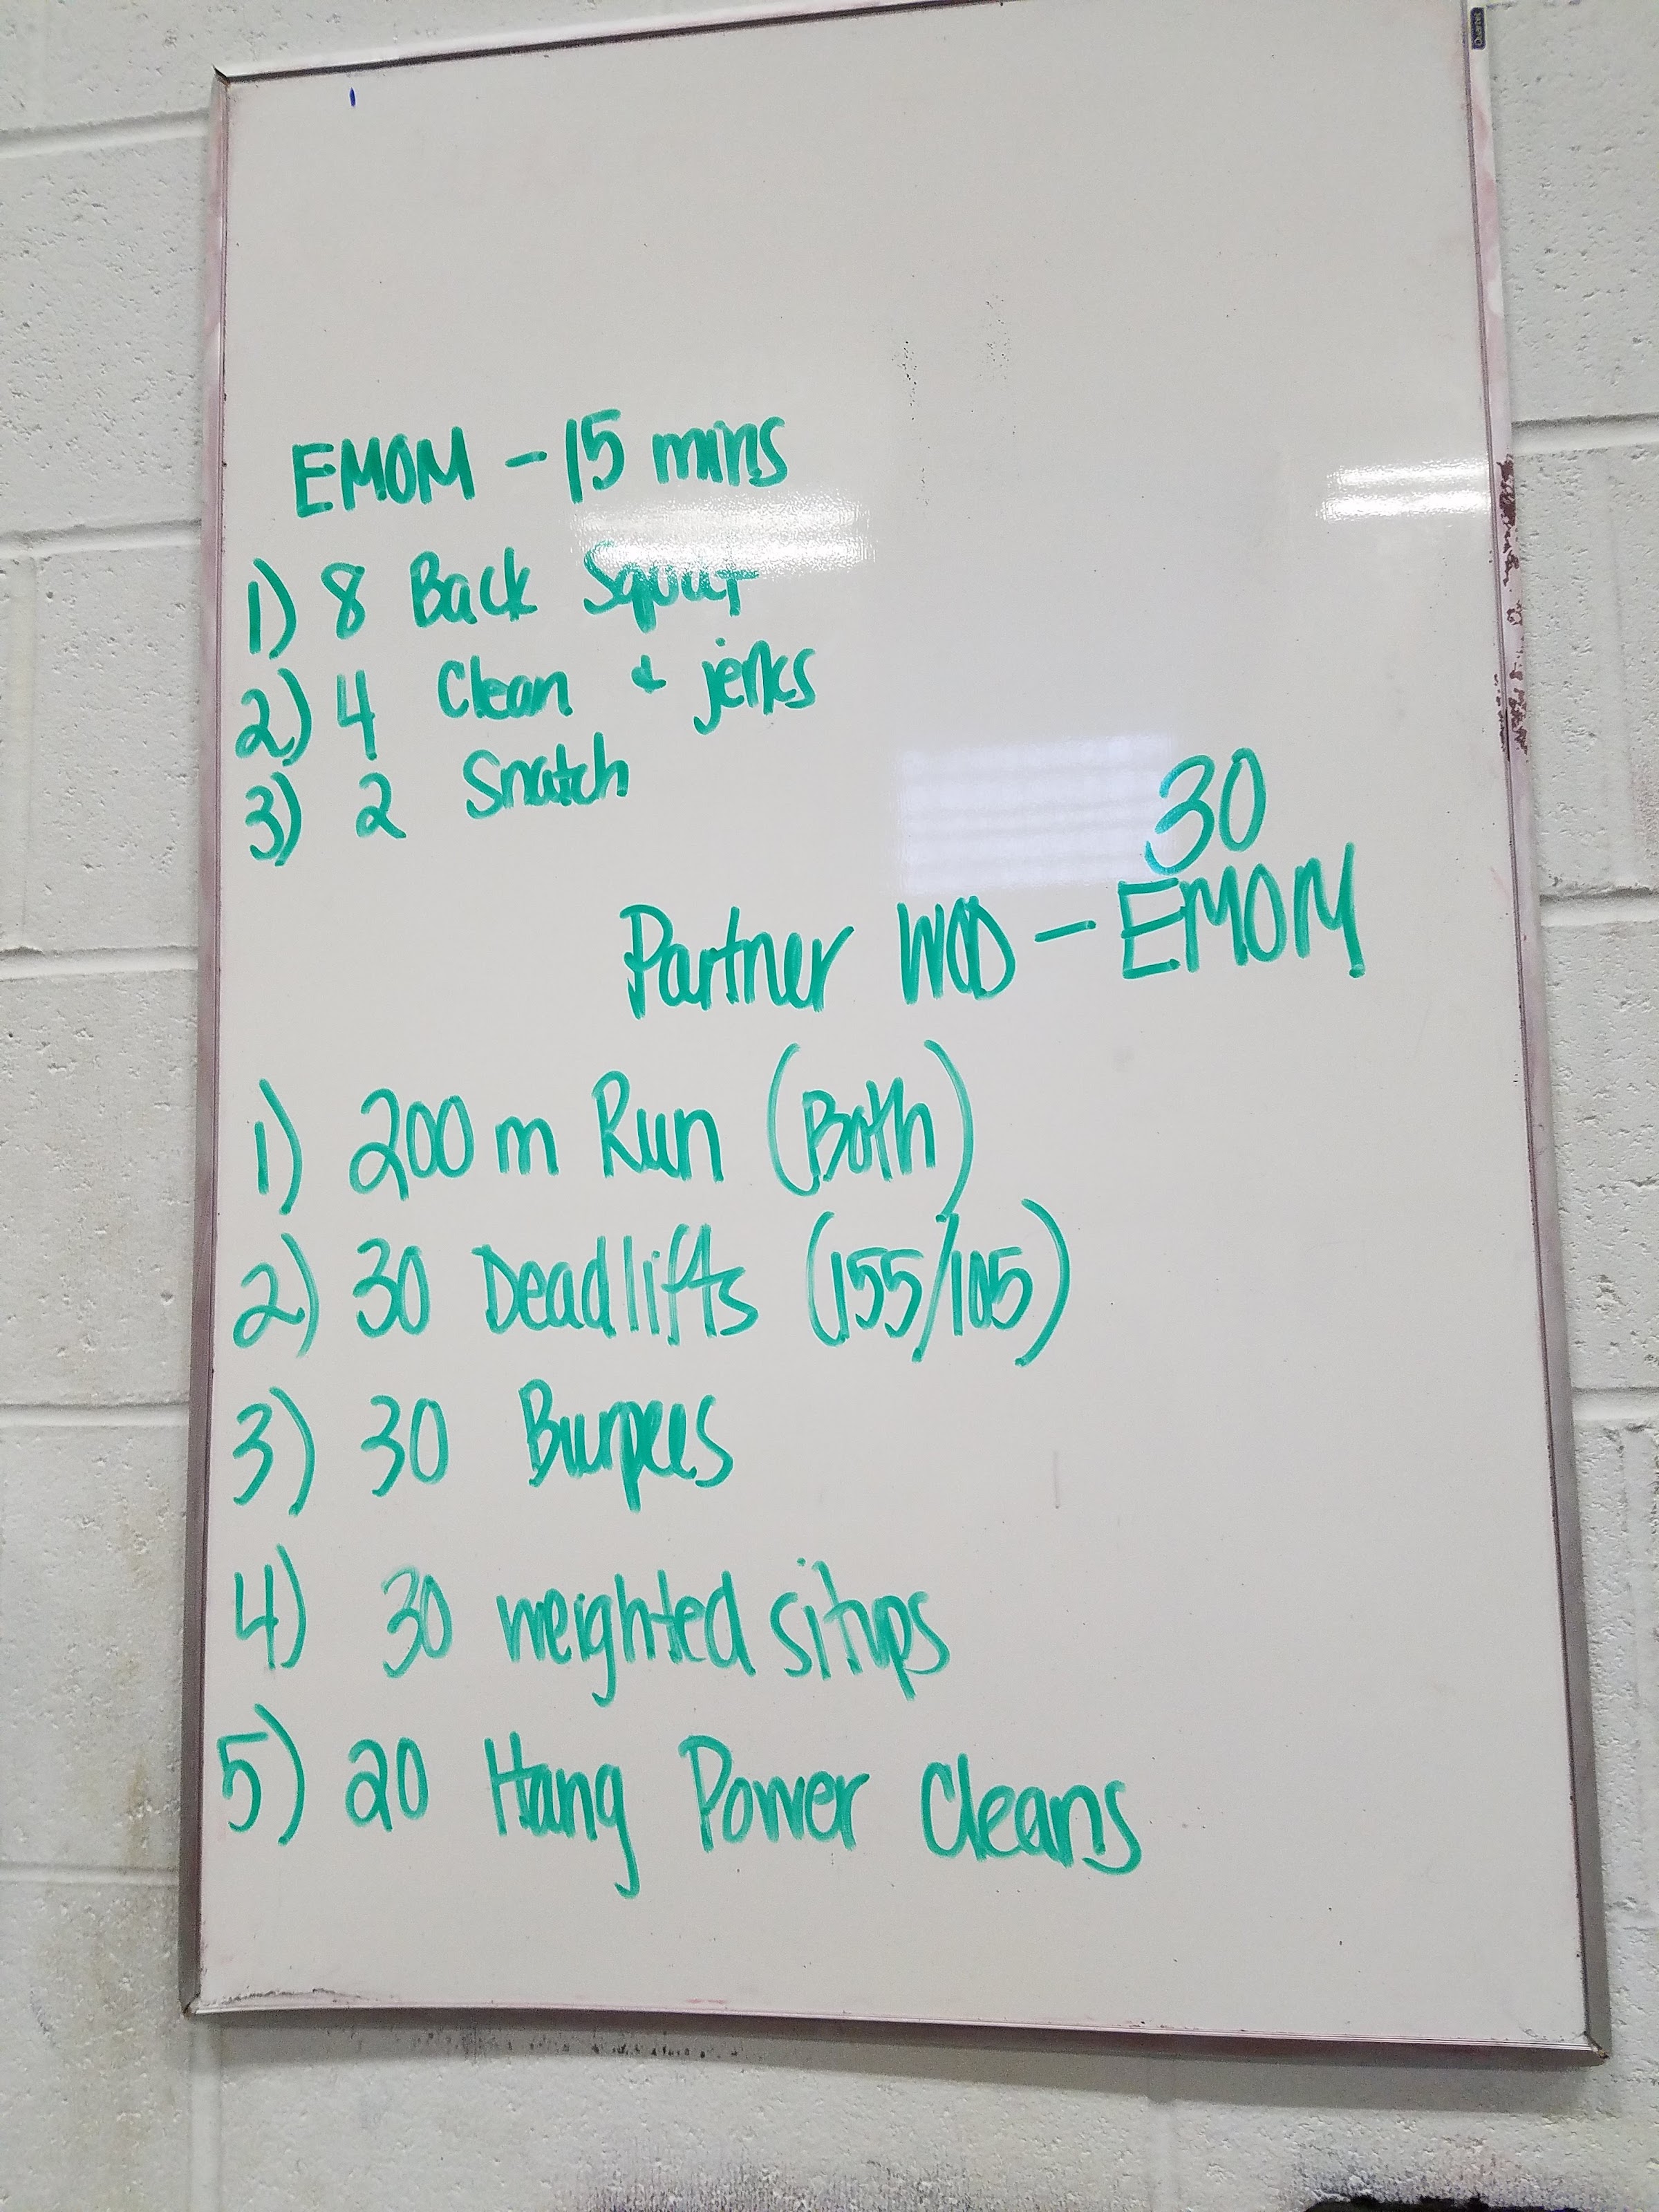 Quartet
EMOM - 15 mins
1) 8 Back Squat
2) 4 Clean & jerks
3) 2 Snatch
30
Partner WOD - EMOM
1) 200 m Run (Both)
2) 30 Deadlifts (155/105)
3) 30 Burpees
4) 30 weighted situps
5) 20 Hang Power Cleans